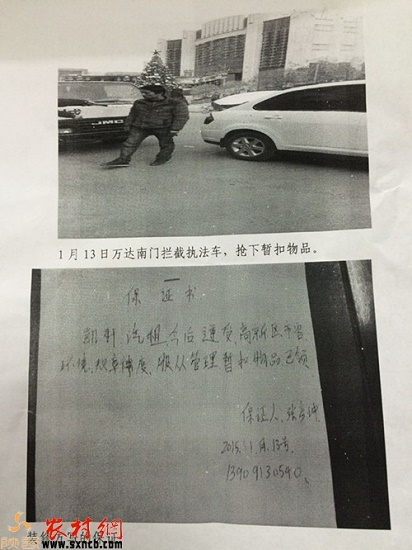 JMC
1月13日万达南门拦截执法车，抢下暂扣物品。
保证书
凯轩汽租今后遵受高新区市容
环境规章制度，服从管理暂扣物品已领
保证人
2015.1月.13号
13909130540
装修方写的保证
农村網
www.sxncb.com